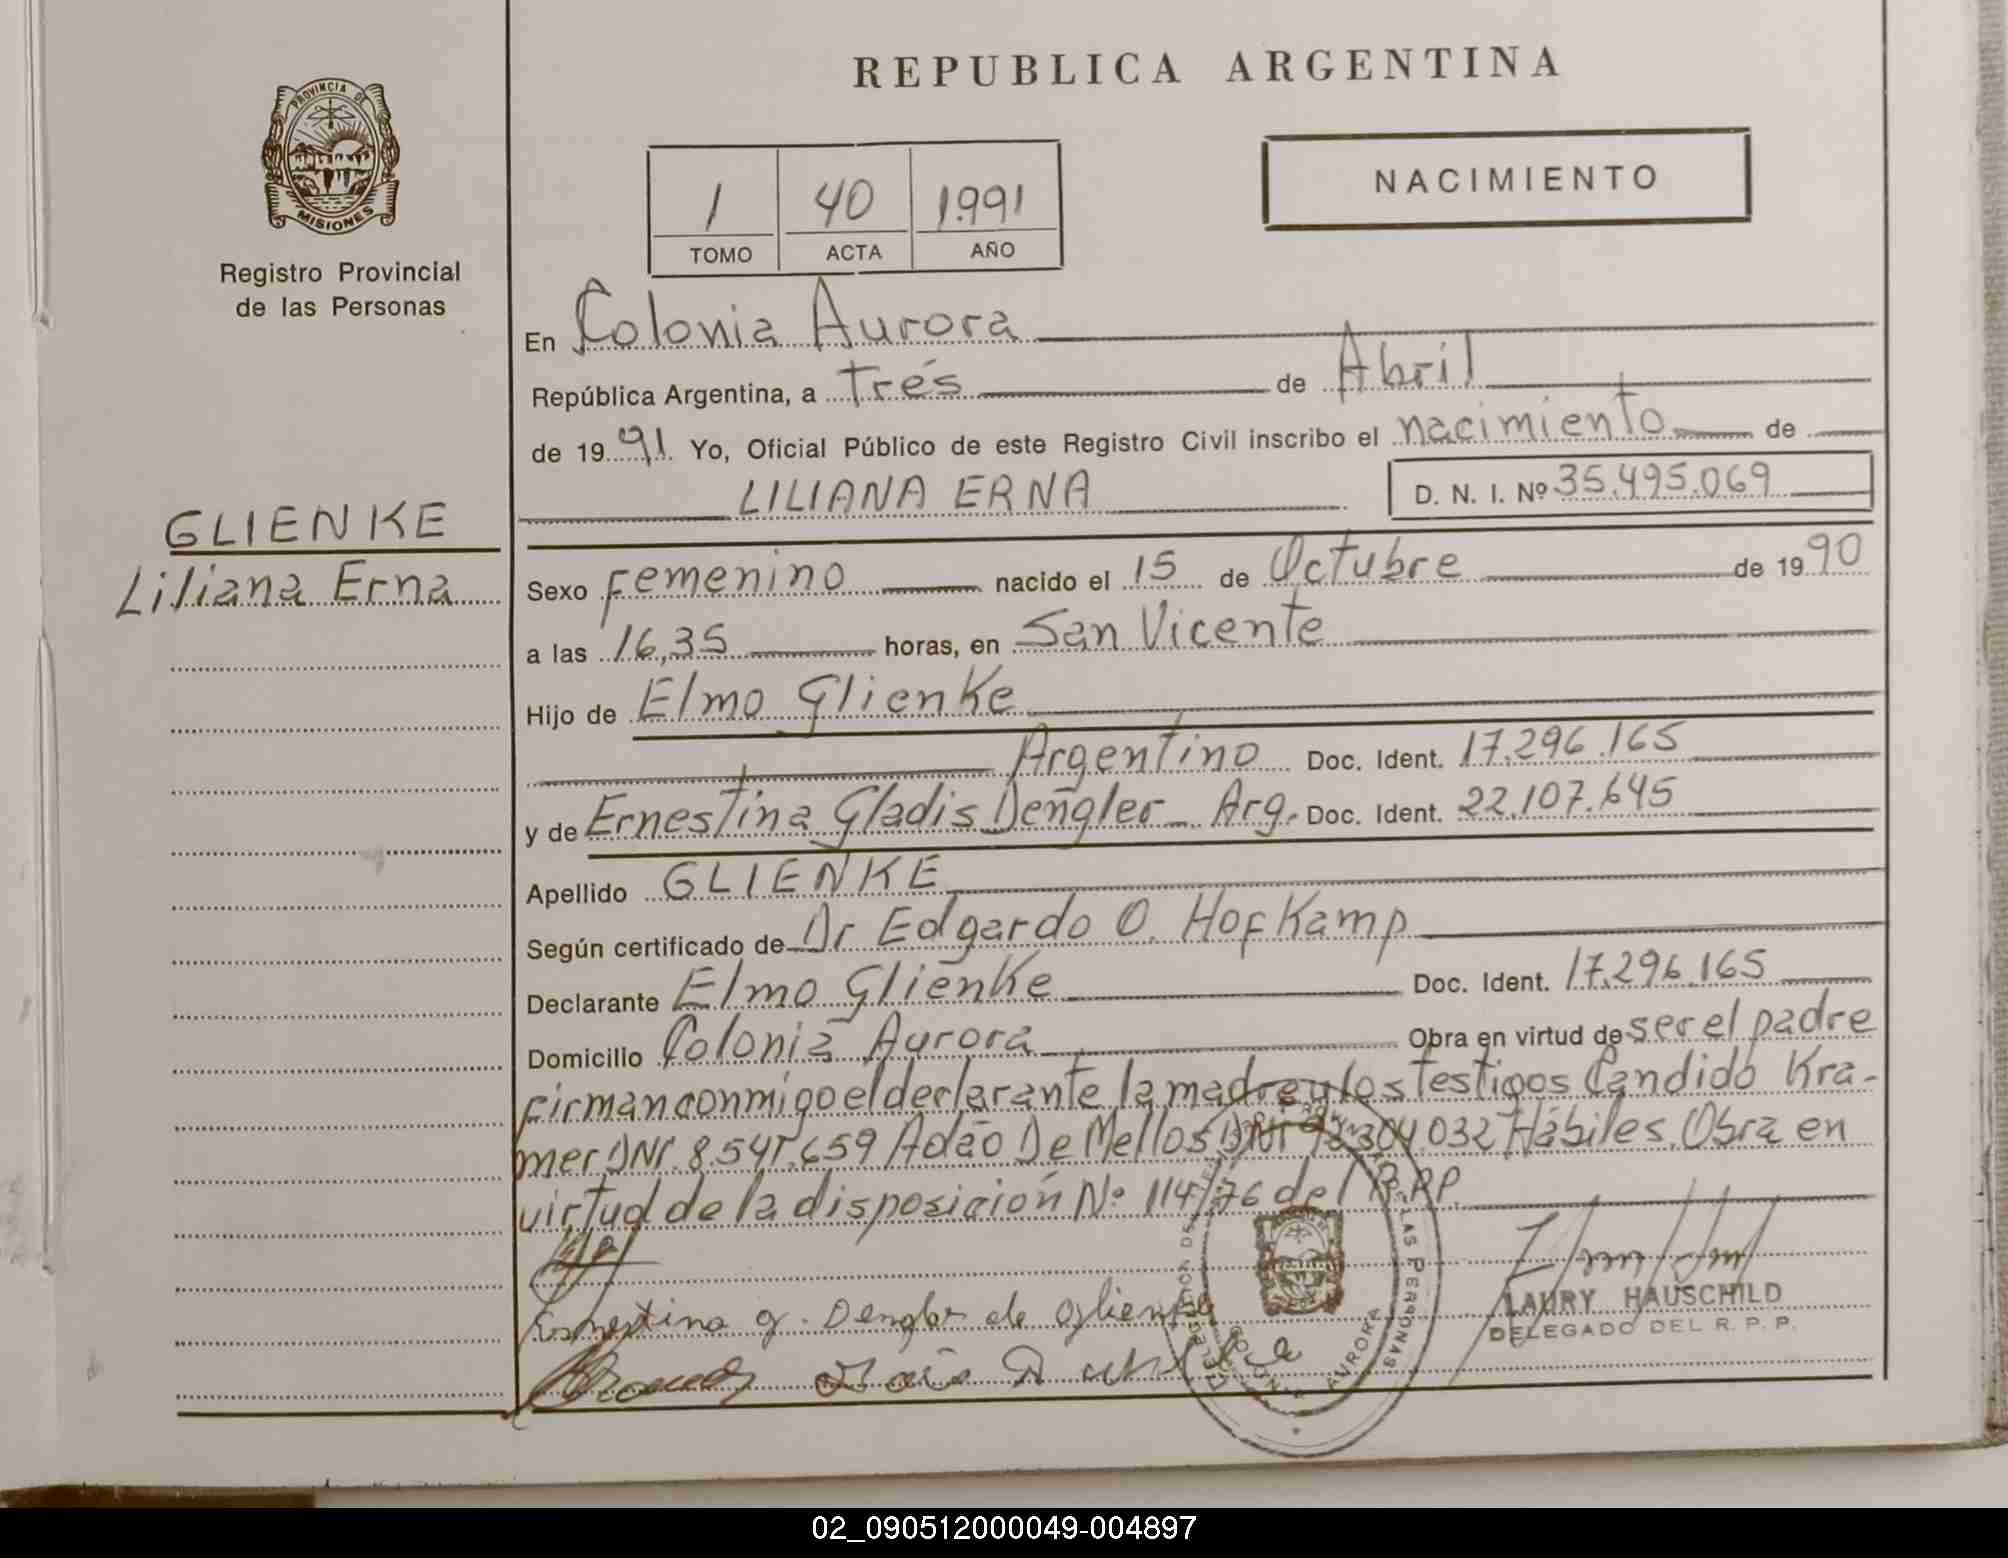 REPUBLICA ARGENTINA
PROVINCIA DE
MISIONES
Registro Provincial
de las Personas
NACIMIENTO
1 40 1991
TOMO ACTA AÑO
En Colonia Aurora
República Argentina, a Trés de Abril
de 1991 Yo, Oficial Público de este Registro Civil inscribo el nacimiento de
LILIANA ERNA D. N. I. Nº 35.495.069
GLIENKE
Liliana Erna
Sexo Femenino nacido el 15 de Octubre de 1990
a las 16,35 horas, en San Vicente
Hijo de Elmo Glienke
Argentino Doc. Ident. 17.296.165
y de Ernestina Gladis Deñgler Arg. Doc. Ident. 22.107.645
Apellido GLIENKE
Según certificado de Dr Edgardo O. Hofkamp
Declarante Elmo Glienke Doc. Ident. 17.296.165
Domicilio Colonia Aurora Obra en virtud de ser el padre
firman conmigo el declarante la madre y los testigos Candido Kra-
mer DNI. 8.541.659 Adão De Mellos DNI 304.032 Hábiles. Obra en
virtud de la disposición Nº 114/76 del R.P.P.
Ernestina g. Dengler de Glienke
LAURY HAUSCHILD
DELEGADO DEL R. P. P.
DE LAS PERSONAS
COLONIA AURORA
02_090512000049-004897